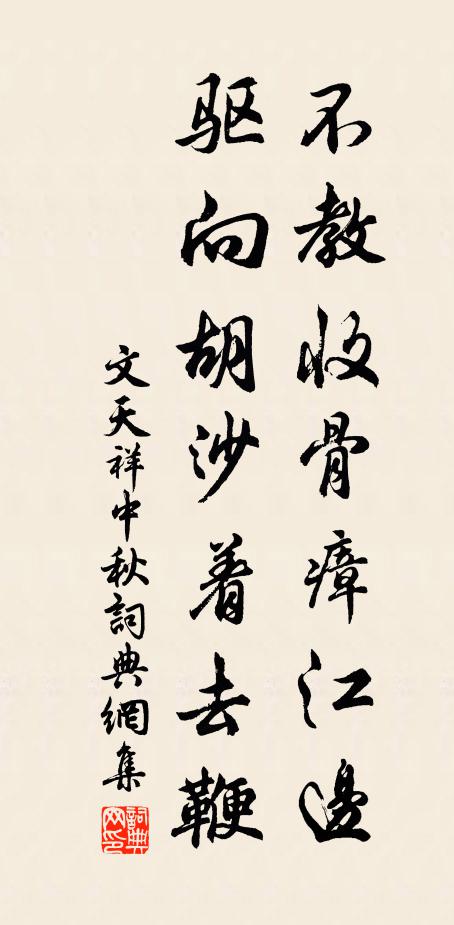 不教收骨瘴江邊
驱向胡沙着去鞭
文天祥中秋詞典網集
詞典網印